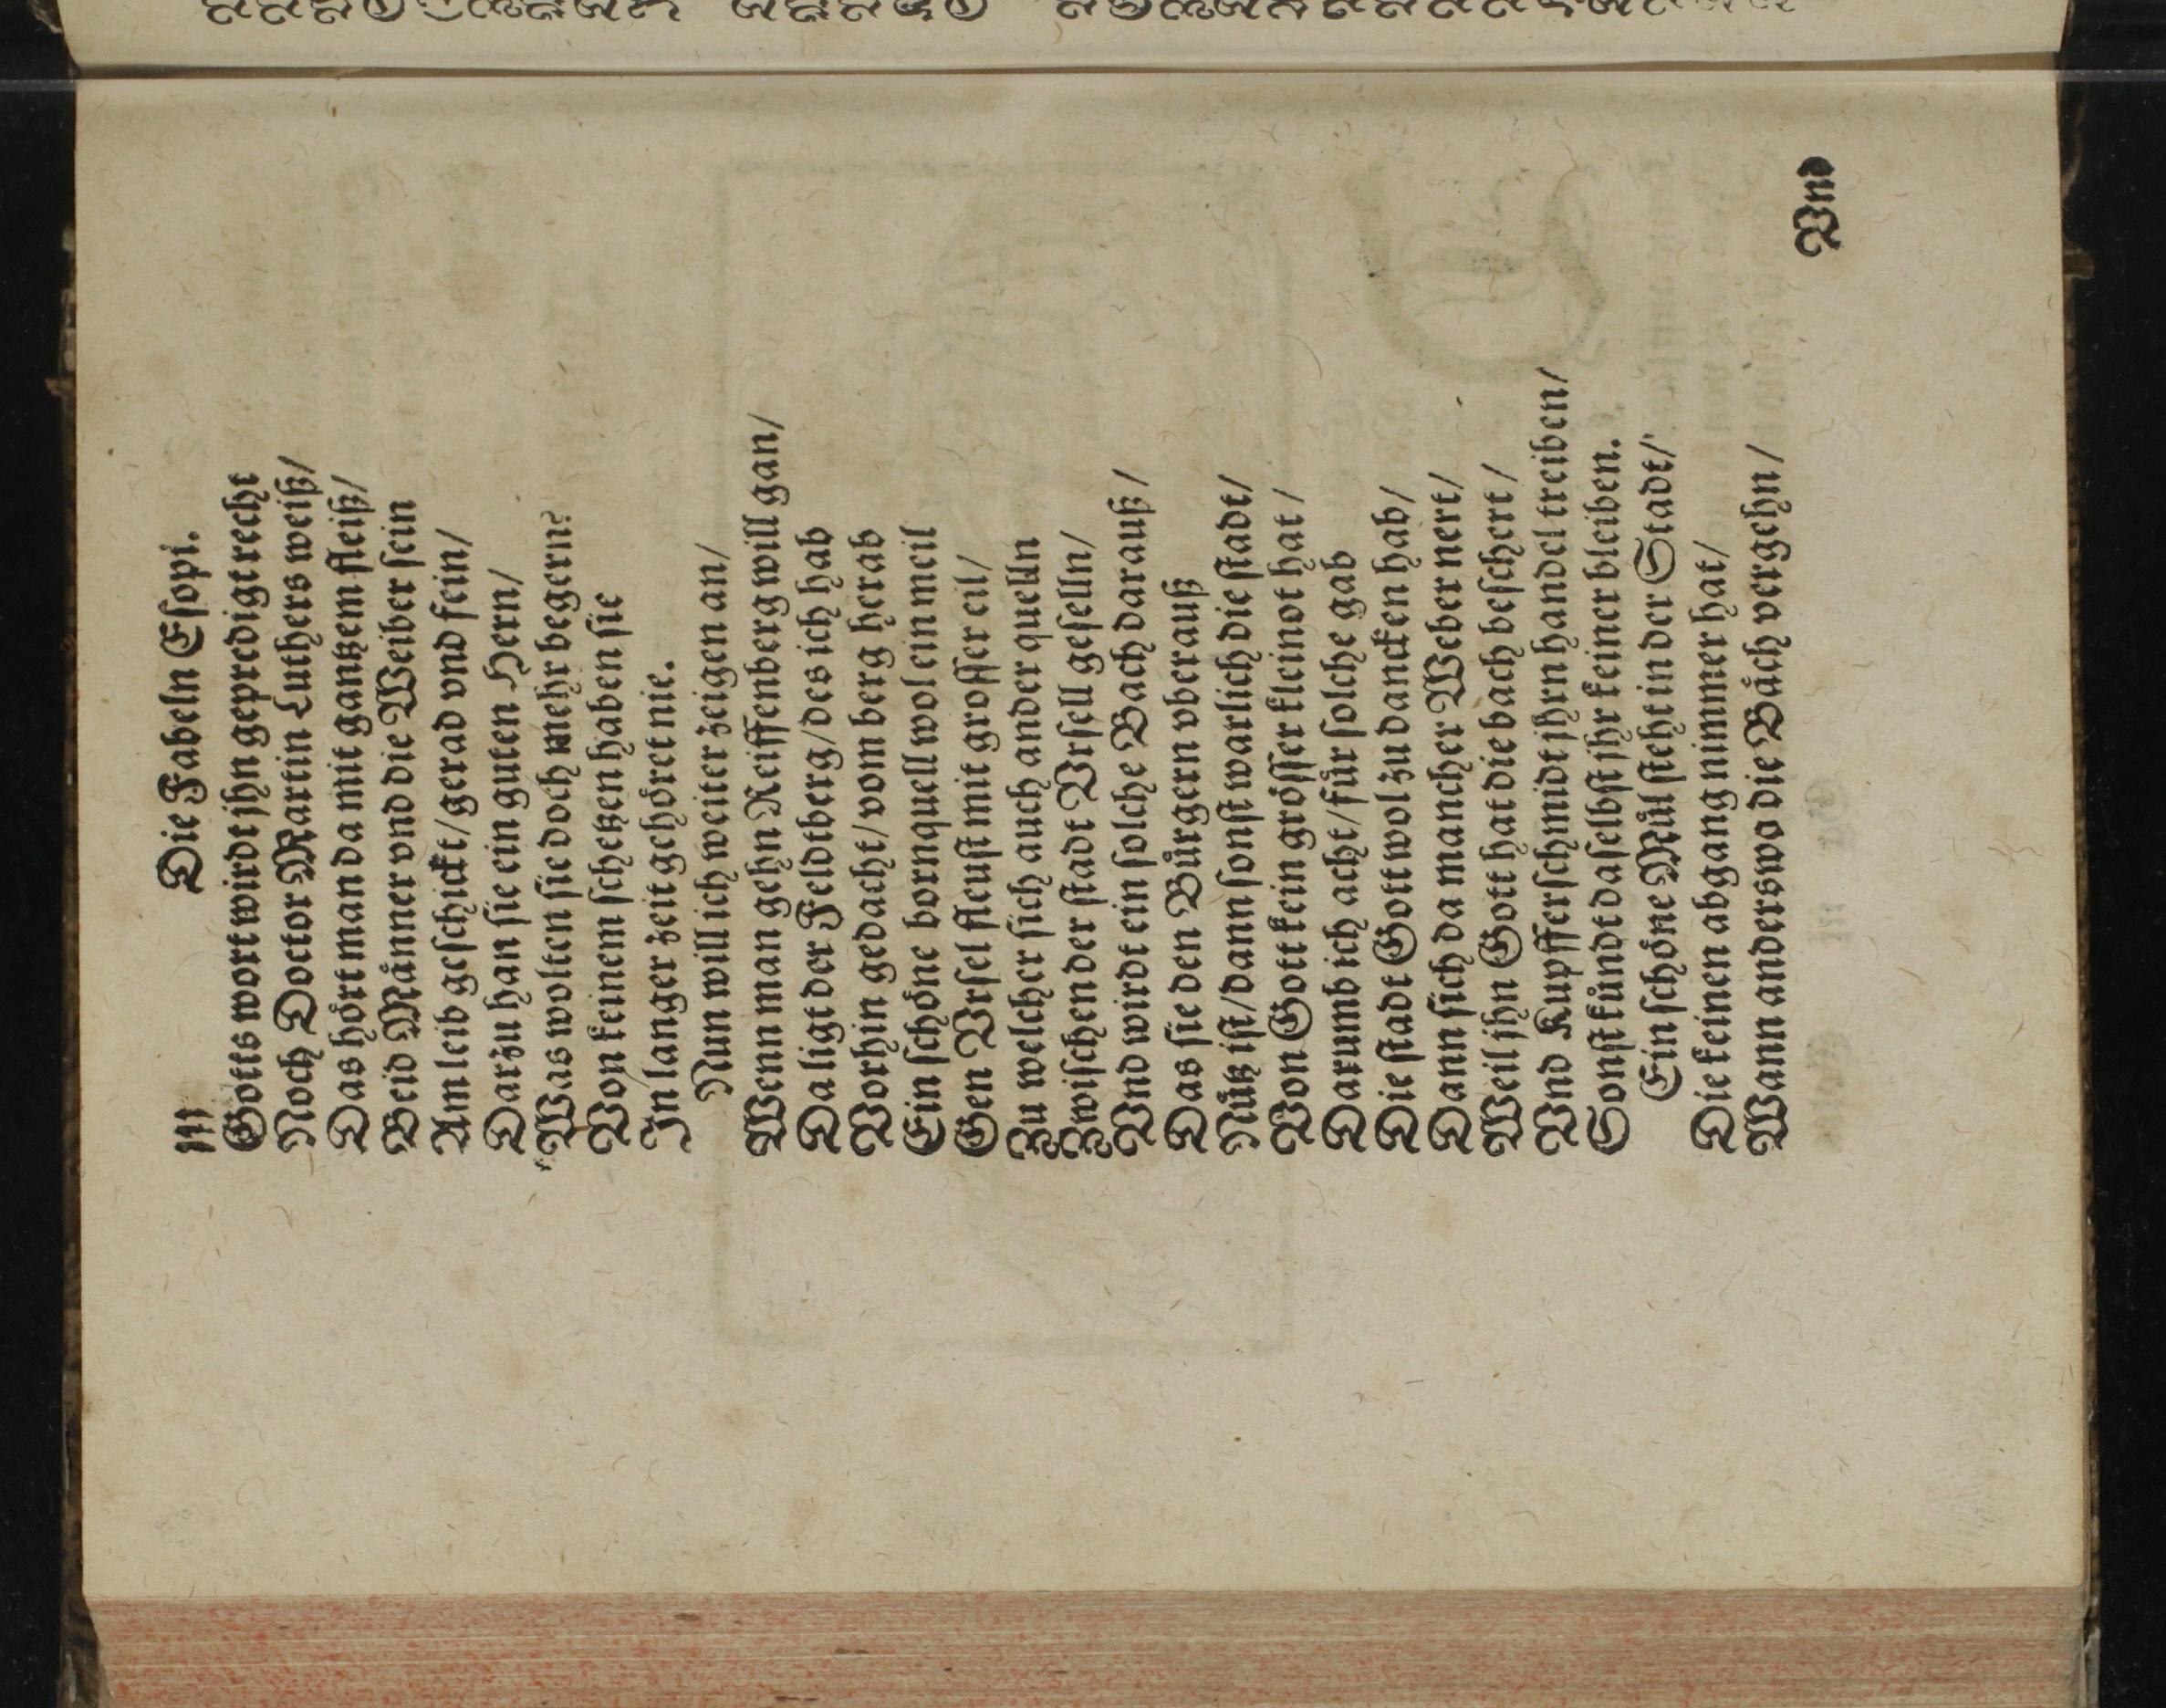 111 Die Fabeln Esopi.
Gotts wort wirdt jhn gepredigt recht
Noch Doctor Martin Luthers weiß/
Das hört man da mit gantzem fleiß/
Beid Männer vnd die Weiber sein
Am leib geschickt/gerad vnd fein/
Darzu han sie ein guten Hern/
Was wolten sie doch mehr begern?
Von keinem schetzen haben sie
Jn langer zeit gehöret nie.
Nun will ich weiter zeigen an/
Wenn man gehn Reiffenberg will gan/
Da ligt der Feldtberg/des ich hab
Vorhin gedacht/vom berg herab
Ein schöne bornquell wol ein meil
Gen Vrsel fleust mit grosser eil/
Zu welcher sich auch ander quelln
Zwischen der stadt Vrsell geselln/
Vnd wirdt ein solche Bach darauß/
Das sie den Bürgern vberauß
Nütz ist/dann sonst warlich die stadt/
Von Gott kein grösser kleinot hat/
Darumb ich acht/für solche gab
Die stadt Gott wol zu dancken hab/
Dann sich da mancher Weber nert/
Weil jhn Gott hat die bach beschert/
Vnd Kupfferschmidt jhrn handel treiben/
Sonst kündt daselbst jhr keiner bleiben.
Ein schöne Mül steht in der Stadt/
Die keinen abgang nimmer hat/
Wann anderswo die Bäch vergehn/
Vnd